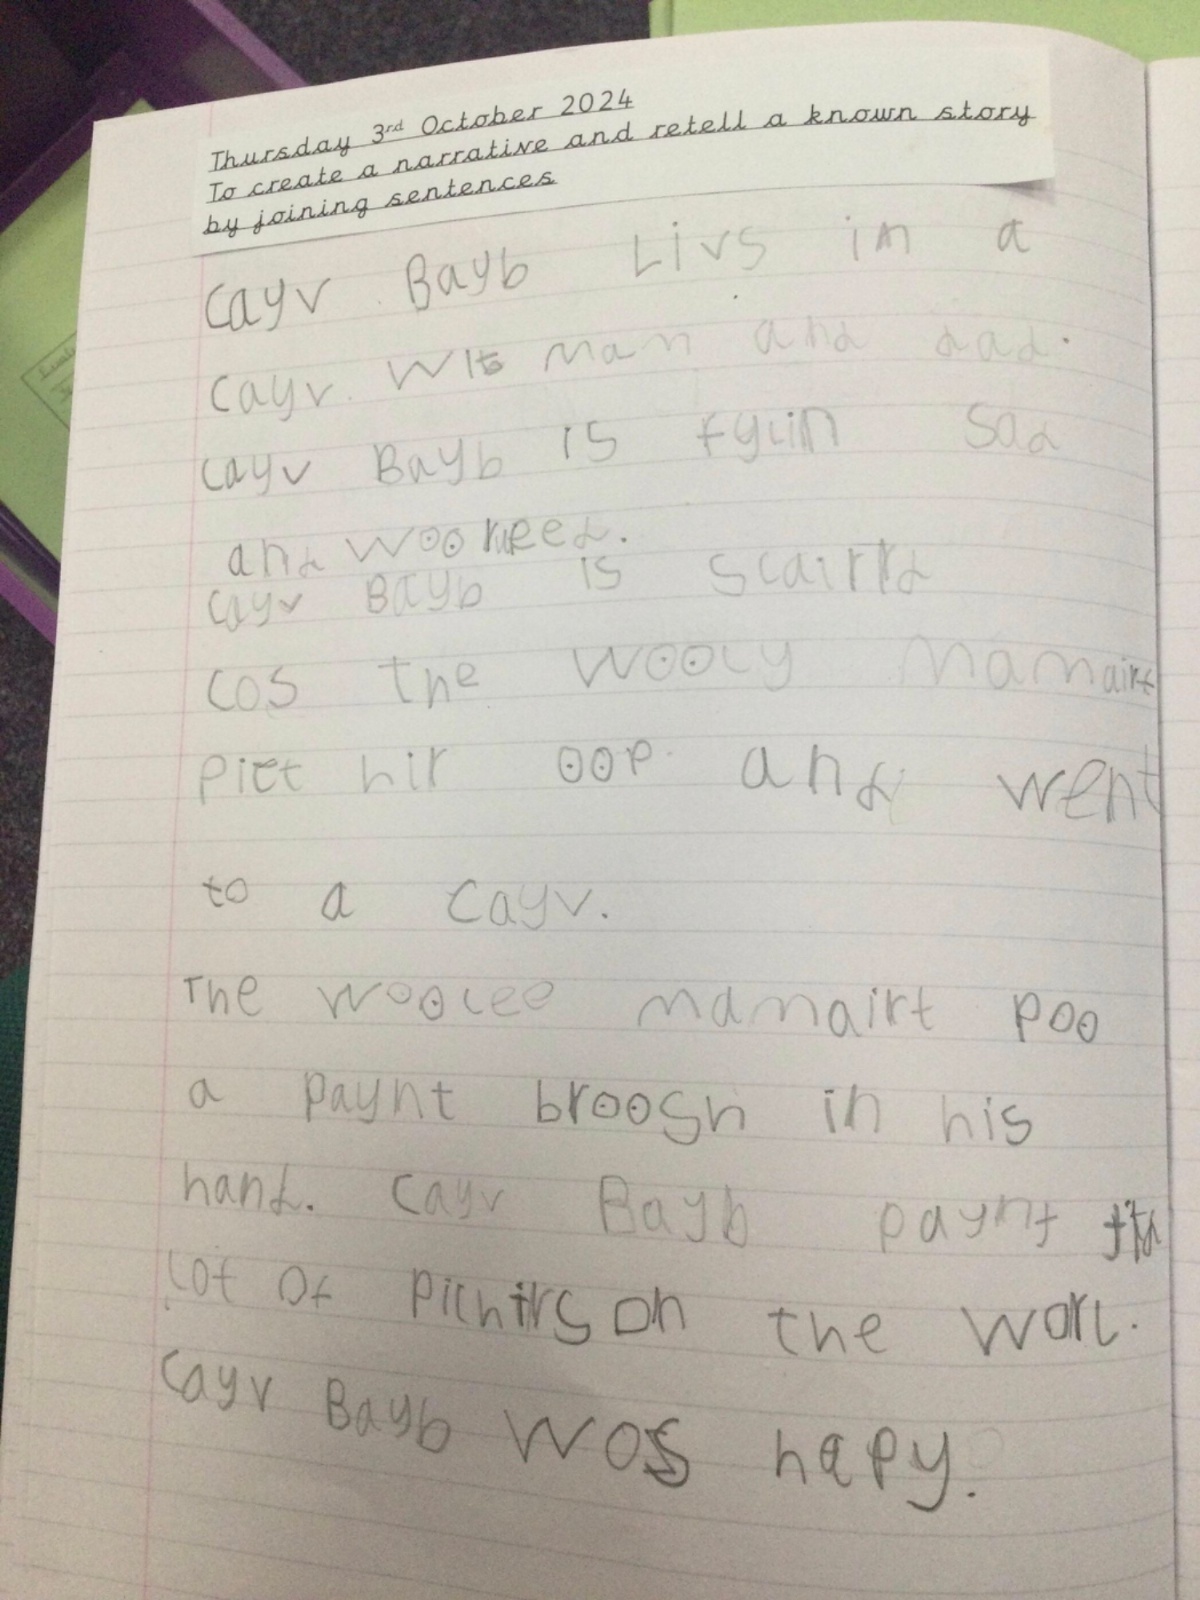 Thursday 3rd October 2024
To create a narrative and retell a known story
by joining sentences
Cayv Bayb Livs in a
cayv. Wit Mam and dad.
cayv Bayb is fylin Sad
and wooreed.
cayv Bayb is scairrd
cos the wooly Mamairt
Pict hir oop and went
to a Cayv.
The woolee mamairt poo
a paynt broosh in his
hand. Cayv Bayb paynt
Lot of Pichirs on the worl.
Cayv Bayb Wos hapy.